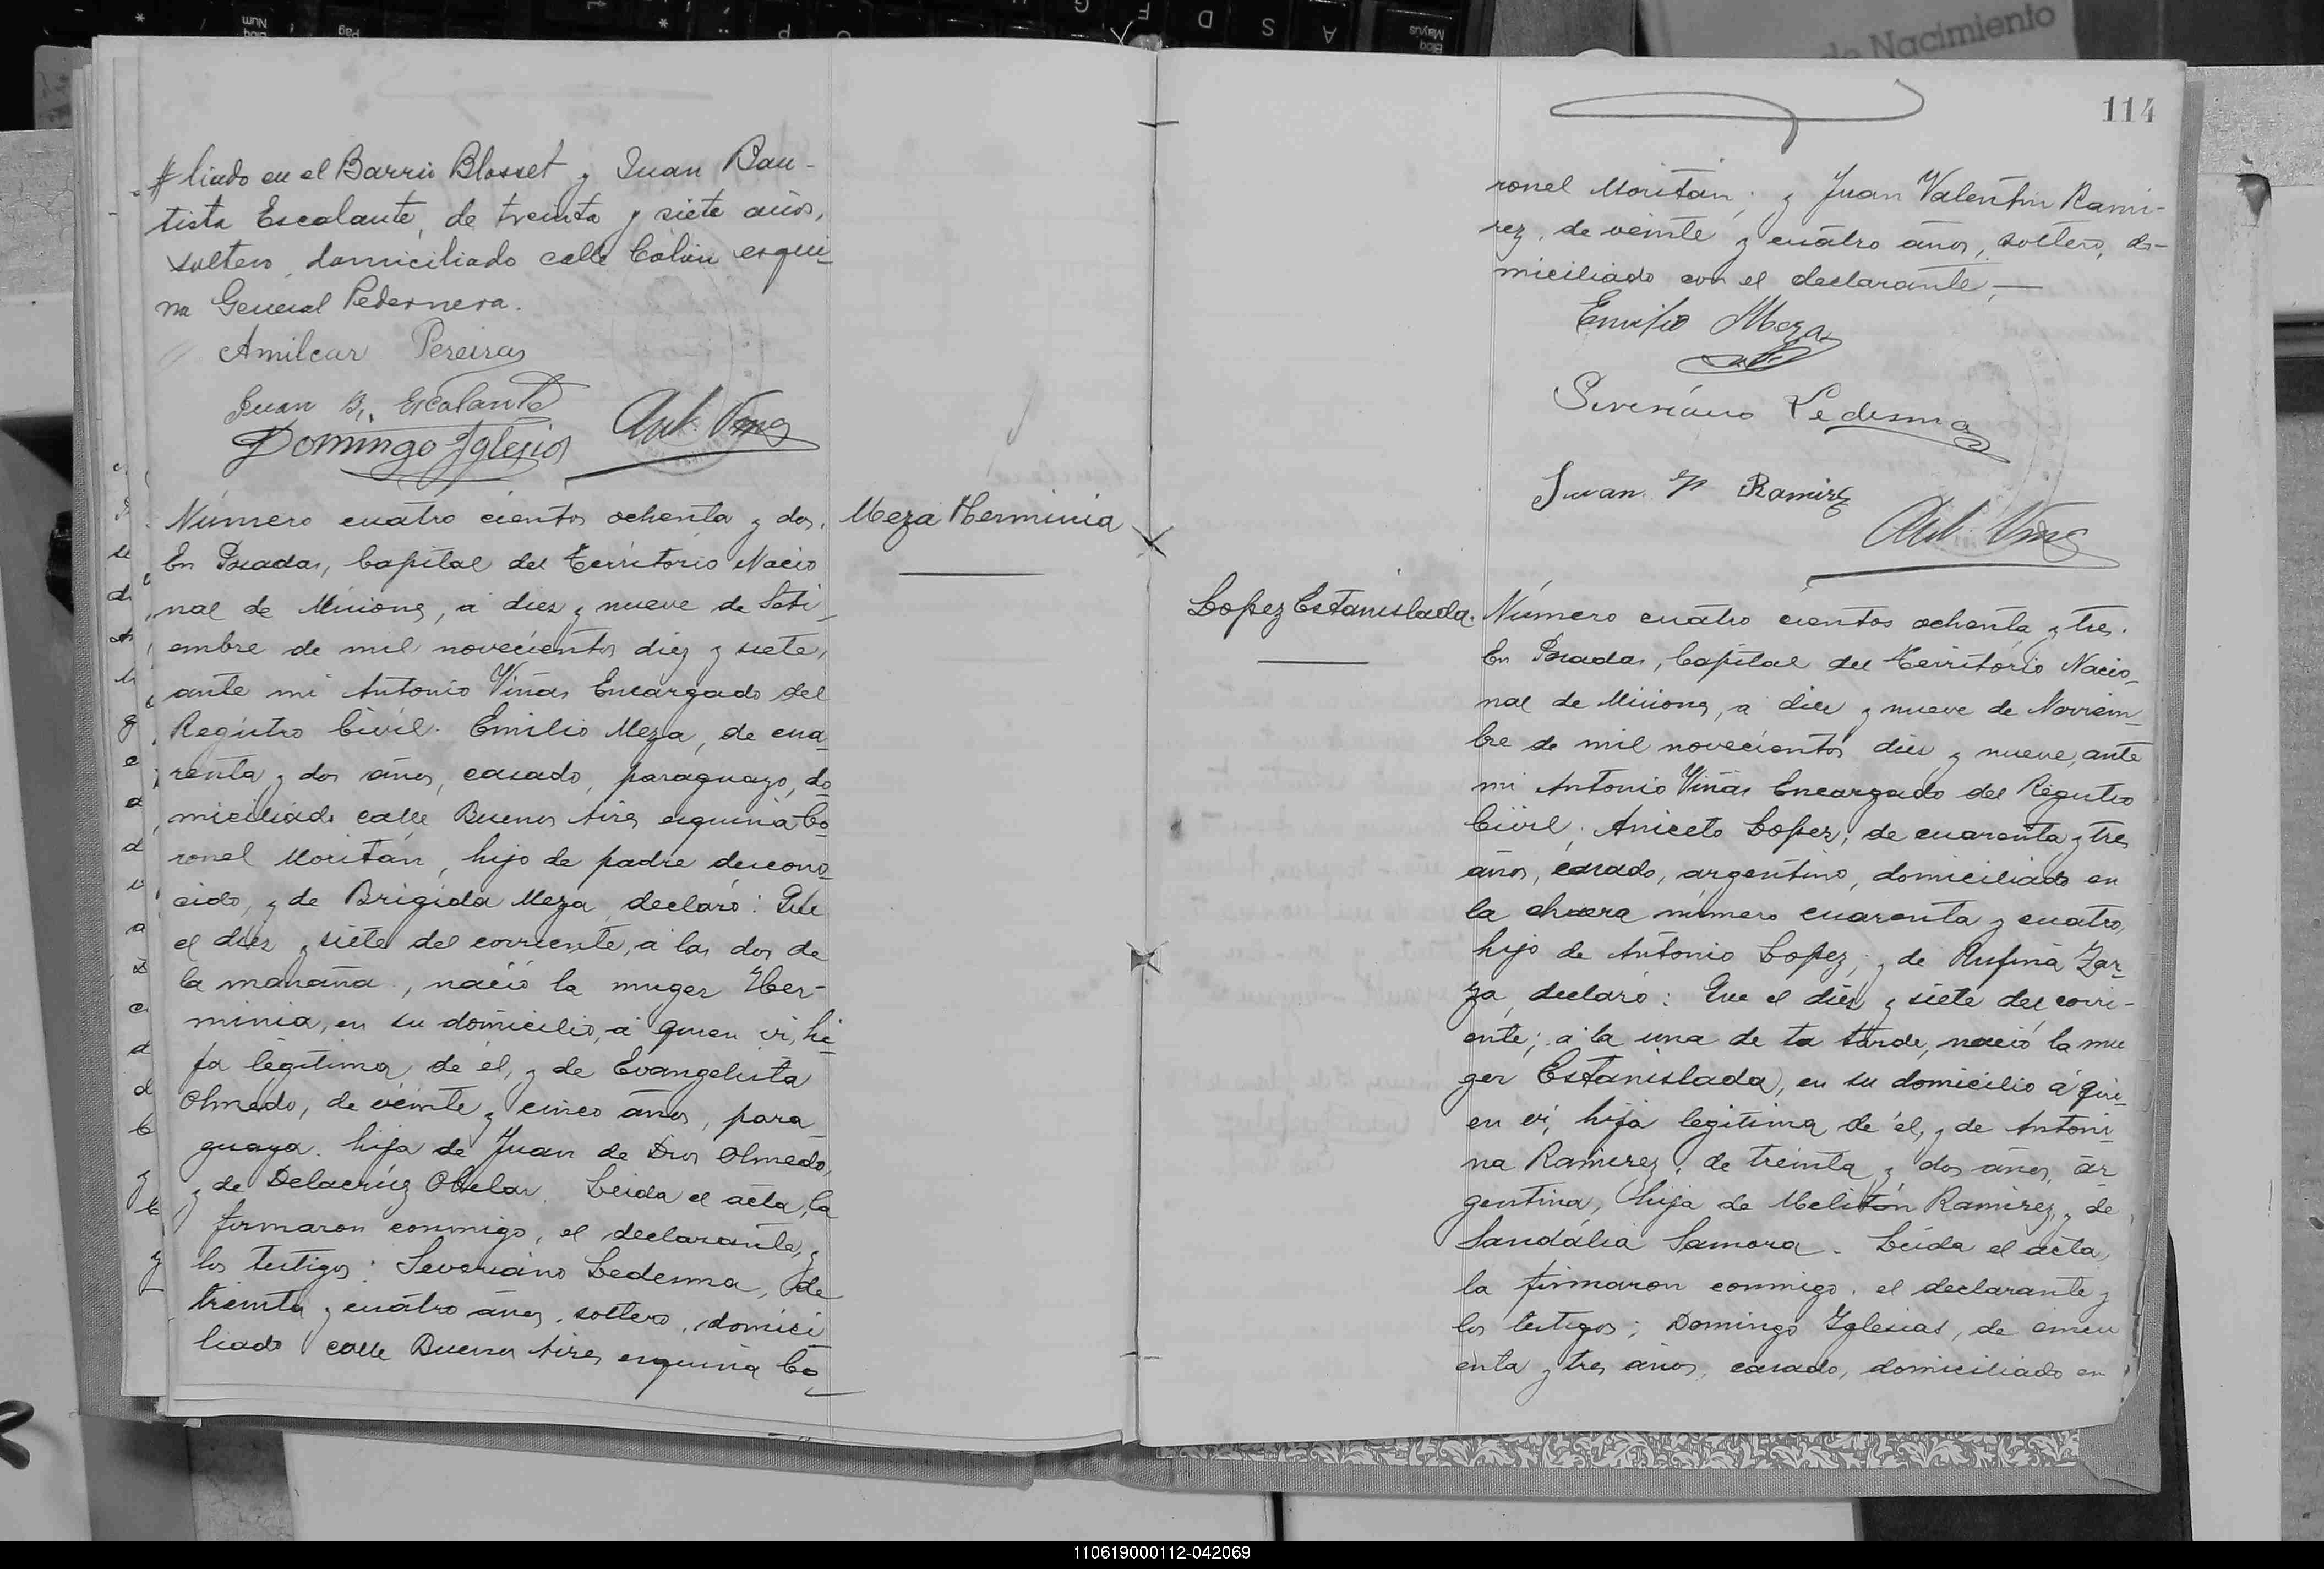 liado en el Barrio Blosset y Juan Bau-
tista Escalante, de treinta y siete años,
soltero, domiciliado calle Colon esqui-
na General Pedernera.
Amilcar Pereira
Juan B. Escalante
Domingo Iglesias
Número cuatro cientos ochenta y dos.
Meza Herminia
En Posadas, Capital del Territorio Nacio
nal de Misiones, a diez y nueve de Seti-
embre de mil novecientos diez y siete,
ante mi Antonio Viñas Encargado del
Registro Civil. Emilio Meza, de cua-
renta y dos años, casado, paraguayo, do-
miciliado calle Buenos Aires esquina Co-
ronel Moritán, hijo de padre descono-
cido, y de Brigida Meza, declaró: Que
el diez y siete del corriente, a las dos de
la mañana, nació la muger Her-
minia, en su domicilio, a quien vi, hi-
ja legitima de él, y de Evangelista
Olmedo, de veinte y cinco años, para-
guaya. hija de Juan de Dios Olmedo,
y de Delacrúz Obelar. Leida el acta, la
firmaron conmigo, el declarante, y
los testigos: Severiano Ledesma, de
treinta y cuatro años, soltero, domici
liado calle Buenos Aires esquina Co-
114
ronel Moritán; y Juan Valentin Rami-
rez, de veinte y cuátro años, soltero, do-
miciliado con el declarante,—
Emilio Meza
Severiano Ledesma
Juan V Ramirez
Lopez Estanislada.
Número cuatro cientos ochenta y tres.
En Posadas, Capital del Territorio Nacio-
nal de Misiones, a diez y nueve de Noviem-
bre de mil novecientos diez y nueve, ante
mi Antonio Viñas Encargado del Registro
Civil, Aniceto Lopez, de cuarenta y tres
años, casado, argentino, domiciliado en
la chacra número cuarenta y cuatro,
hijo de Antonio Lopez, y de Rufina Zar-
za, declaró: Que el diez y siete del corri-
ente; a la una de la tarde, nació la mu
ger Estanislada, en su domicilio a qui-
en vi, hija legitima de él, y de Antoni-
na Ramirez, de treinta y dos años, ar
gentina, hija de Melitón Ramirez, y de
Sandália Samora. Leida el acta,
la firmaron conmigo, el declarante y
los testigos; Domingo Iglesias, de cincu
enta y tres años, casado, domiciliado en
110619000112-042069